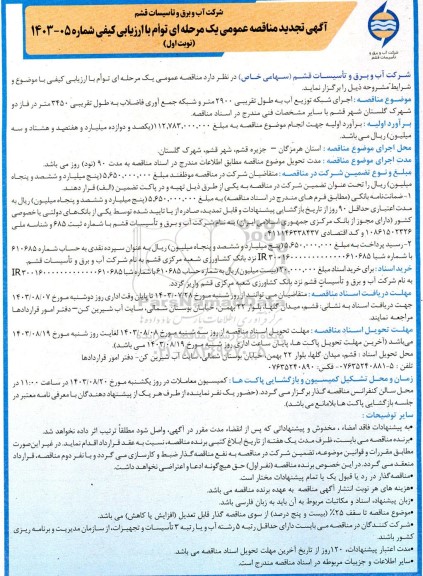 شرکت آب و برق و تاسیسات قشم
آگهی تجدید مناقصه عمومی یک مرحله ای توأم با ارزیابی کیفی شماره ۰۵-۱۴۰۳
(نوبت اول)
شرکت آب و برق و تأسیسات قشم (سهامی خاص) در نظر دارد مناقصه عمومی یک مرحله ای توأم با ارزیابی کیفی با موضوع و
شرایط مشروحه ذیل را برگزار نماید.
موضوع مناقصه: اجرای شبکه توزیع آب به طول تقریبی ۲۹۰۰ متر و شبکه جمع آوری فاضلاب به طول تقریبی ۲۴۵۰ متر در فاز دو
شهرک گلستان شهر قشم با سایر مشخصات فنی مندرج در اسناد مناقصه.
برآورد اولیه: برآورد اولیه جهت انجام موضوع مناقصه به مبلغ ۱۱۲,۷۸۳,۰۰۰,۰۰۰ (یکصد و دوازده میلیارد و هفتصد و هشتاد و سه
میلیون) ریال می باشد.
محل اجرای موضوع مناقصه: استان هرمزگان – جزیره قشم، شهر قشم، شهرک گلستان.
مدت اجرای موضوع مناقصه: مدت تحویل موضوع مناقصه مطابق اطلاعات مندرج در اسناد مناقصه به مدت ۹۰ (نود) روز می باشد.
مبلغ و نوع تضمین شرکت در مناقصه: متقاضیان شرکت در مناقصه موظفند مبلغ ۵,۶۵۰,۰۰۰,۰۰۰ (پنج میلیارد و ششصد و پنجاه
میلیون) ریال را تحت عنوان تضمین شرکت در مناقصه به یکی از طرق ذیل تهیه و در پاکت تضمین (الف) قرار دهند.
۱- ضمانت‌نامه بانکی (مطابق فرم های مندرج در اسناد مناقصه) به مبلغ ۵,۶۵۰,۰۰۰,۰۰۰ (پنج میلیارد و ششصد و پنجاه میلیون) ریال به
مدت اعتباری حداقل ۹۰ روز از تاریخ بازگشایی پیشنهادات و قابل تمدید، صادره از یا تایید شده توسط یکی از بانک‌های دولتی یا خصوصی
کشور (دارای مجوز از بانک مرکزی جمهوری اسلامی ایران) به نام شرکت آب و برق و تأسیسات قشم با شماره ثبت ۶۸۵ و شناسه ملی
۲- رسید پرداخت به مبلغ ۵,۶۵۰,۰۰۰,۰۰۰ (پنج میلیارد و ششصد و پنجاه میلیون) ریال به عنوان سپرده نقدی به حساب شماره ۶۱۰۶۸۵
نزد بانک کشاورزی شعبه مرکزی قشم به نام شرکت آب و برق و تأسیسات قشم
به نام شرکت آب و برق و تأسیسات قشم نزد بانک کشاورزی شعبه مرکزی قشم واریز گردد.
مهلت دریافت اسناد مناقصه: متقاضیان می توانند از روز شنبه مورخ ۱۴۰۳/۰۷/۲۸ تا پایان وقت اداری روز دوشنبه مورخ ۱۴۰۳/۰۸/۰۷
جهت دریافت اسناد به نشانی: قشم، میدان گلها، بلوار ۲۲ بهمن، خیابان بوستان شمالی، سایت آب شیرین کن – دفتر امور قراردادها
مراجعه نمایند
مهلت تحویل اسناد مناقصه: مهلت تحویل اسناد مناقصه از روز سه شنبه مورخ ۱۴۰۳/۰۸/۰۸ لغایت روز شنبه مورخ ۱۴۰۳/۰۸/۱۹
می باشد. (آخرین مهلت تحویل پاکت ها، پایان ساعت اداری روز شنبه مورخ ۱۴۰۳/۰۸/۱۹ می باشد).
محل تحویل اسناد: قشم، میدان گلها، بلوار ۲۲ بهمن، خیابان بوستان شمالی، سایت آب شیرین کن- دفتر امور قراردادها
زمان و محل تشکیل کمیسیون و بازگشایی پاکت ها: کمیسیون معاملات در روز یکشنبه مورخ ۱۴۰۳/۰۸/۲۰ در ساعت ۱۱:۰۰ در
محل سالن کنفرانس مناقصه گذار برگزار می گردد. (حضور یک نفر نماینده از طرف هر یک از پیشنهاد دهندگان با معرفی نامه معتبر در
جلسه بازگشایی پاکت ها بلامانع می باشد).
سایر توضیحات:
•به پیشنهادات فاقد امضاء، مخدوش و پیشنهاداتی که پس از انقضاء مدت مقرر در آگهی، واصل شود مطلقا ترتیب اثر داده نخواهد شد.
•برنده مناقصه می بایست، ظرف مدت یک هفته از تاریخ ابلاغ کتبی برنده مناقصه، نسبت به عقد قرارداد اقدام نماید. در غیر این‌صورت
مطابق مقررات و قوانین موضوعه، تضمین شرکت در مناقصه به نفع مناقصه‌گذار ضبط و کارسازی می گردد و با نفر دوم مناقصه، قرارداد
منعقد می گردد. در این خصوص برنده مناقصه (نفر اول) حق هیچ‌گونه ادعا و اعتراضی نخواهد داشت.
•مناقصه‌گذار در رد یا قبول یک یا تمام پیشنهادات مختار است.
•هزینه های هر نوبت انتشار آگهی مناقصه به عهده برنده مناقصه می باشد.
•زبان پیشنهاد، اسناد و مکاتبات مربوط به آن باید به زبان فارسی باشد.
•موضوع مناقصه تا سقف ۲۵٪ (بیست و پنج درصد) از سوی مناقصه گذار قابل تعدیل (افزایش یا کاهش) می باشد.
•شرکت کنندگان در مناقصه می بایست دارای حداقل رتبه ۵ رشته آب و یا رتبه ۳ تأسیسات و تجهیزات، از سازمان مدیریت و برنامه ریزی
کشور باشند.
•مدت اعتبار پیشنهادات، ۱۲۰ روز از تاریخ آخرین مهلت تحویل اسناد مناقصه می باشد.
•سایر اطلاعات و جزییات مربوطه در اسناد مناقصه مندرج است.